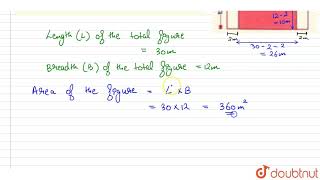 12-2
=10m
2m
2m
30-2-2
= 26m
Length (L) of the total figure
= 30m
Breadth (B) of the total fig = 12m
Area of the figure = L × B
= 30×12 = 360m²
doubtnut